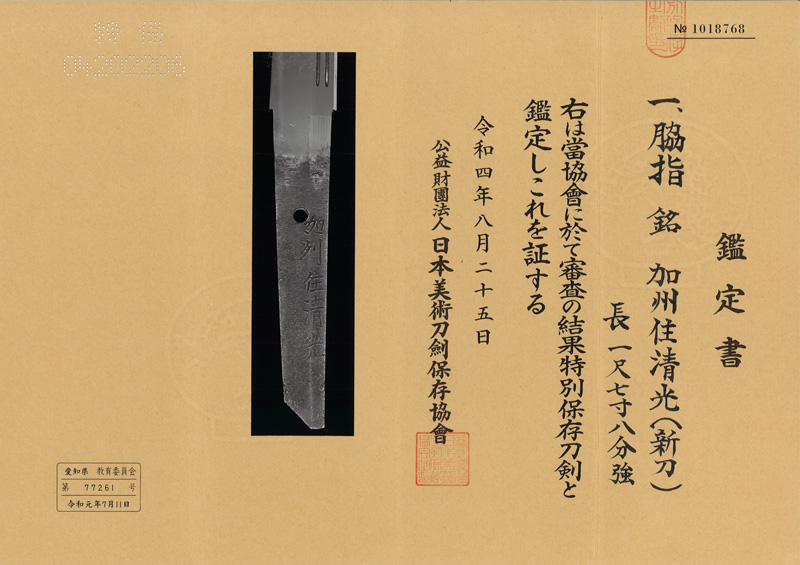 № 1018768
鑑定書
一、脇指 銘 加州住清光(新刀)
長一尺七寸八分強
右は當協會に於て審査の結果特別保存刀剣と
鑑定しこれを証する
令和四年八月二十五日
公益財團法人日本美術刀劍保存協會
加州住清光
04202206
愛知県 教育委員会
第 77261 号
令和元年7月11日